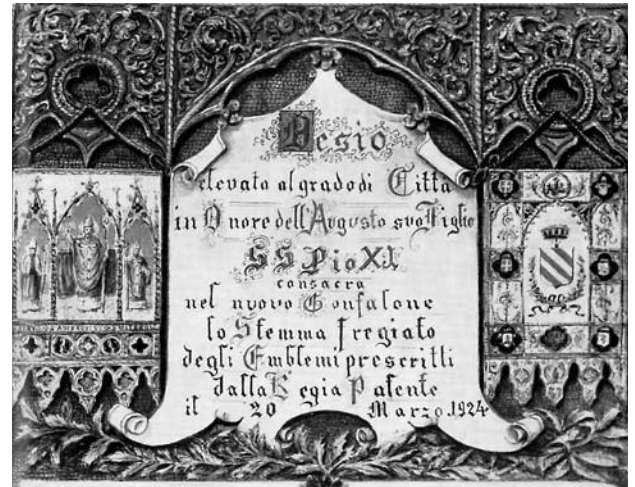 Desio
elevata al grado di Citta
in Onore dell'Augusto suo Figlio
S S Pio XI.
consacra
nel nuovo Gonfalone
lo Stemma fregiato
degli Emblemi prescritti
dalla Regia Patente
il 20 Marzo. 1924